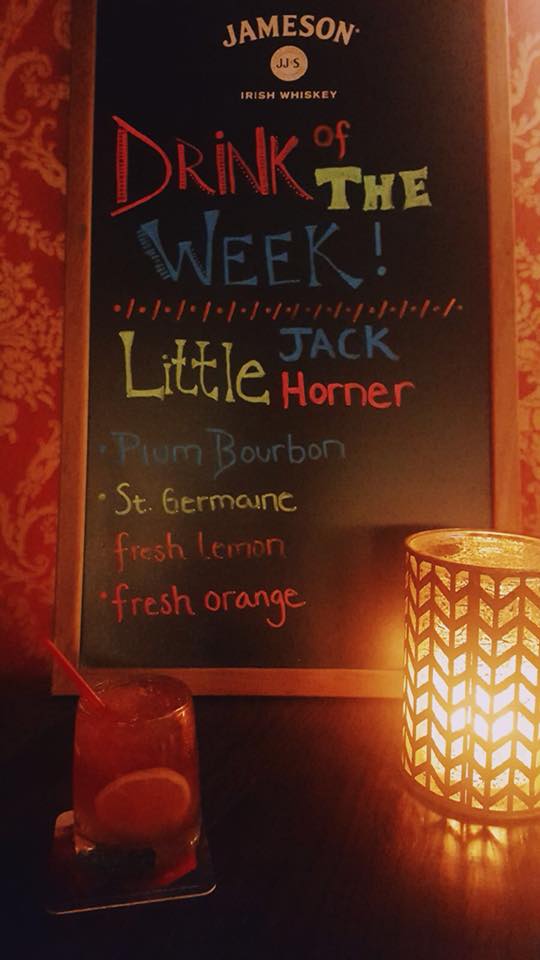 JAMESON
JJ&S
IRISH WHISKEY
DRiNK of
THE
WEEK!
Little JACK
Horner
• Plum Bourbon
• St. Germaine
fresh Lemon
• fresh orange